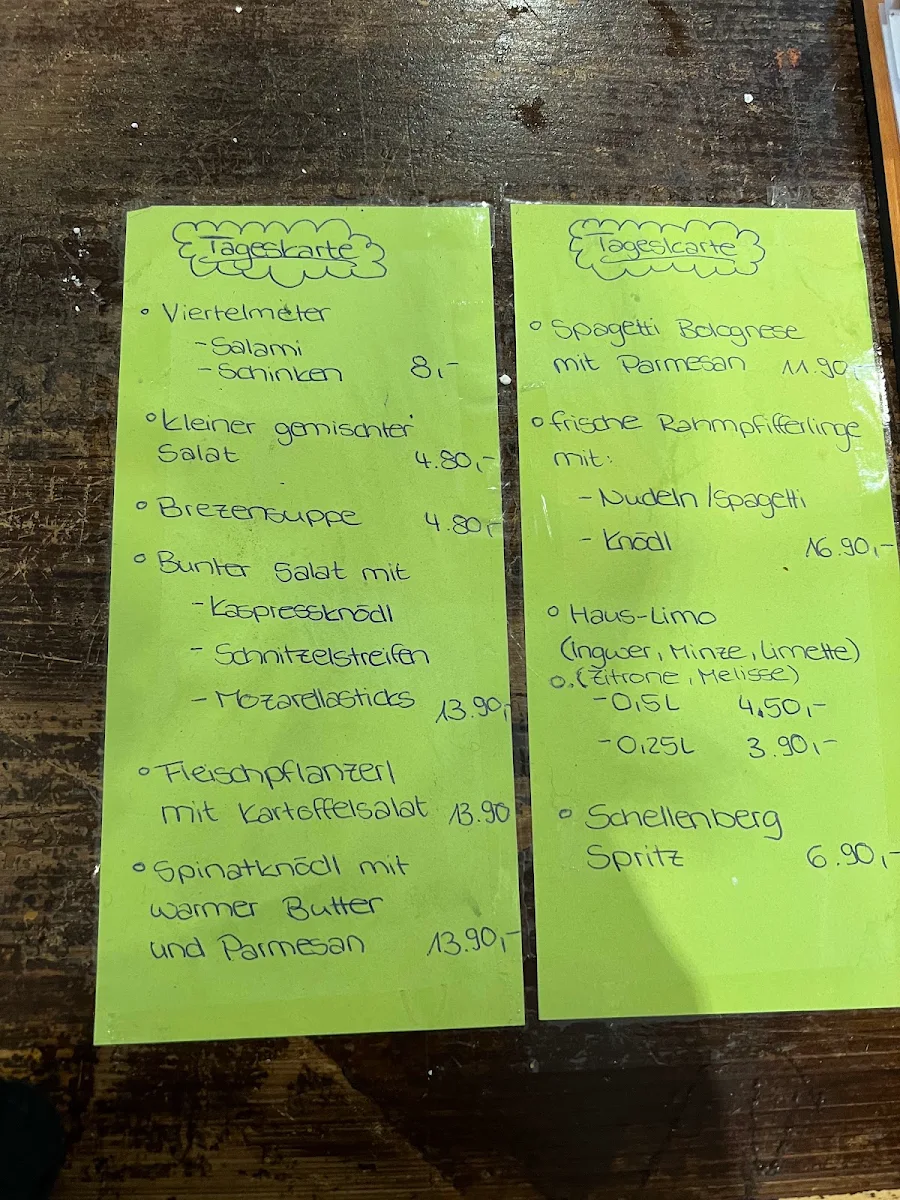 Tageskarte
° Viertelmeter
- Salami
- Schinken 8,-
° kleiner gemischter
Salat 4.80,-
° Brezensuppe 4.80,-
° Bunter Salat mit
- Kaspressknödl
- Schnitzelstreifen
- Mozarellasticks 13.90,-
° Fleischpflanzerl
mit Kartoffelsalat 13.90
° Spinatknödl mit
warmer Butter
und Parmesan 13.90,-
Tageskarte
° Spagetti Bolognese
mit Parmesan 11.90
° frische Rahmpfifferlinge
mit:
- Nudeln/Spagetti
- Knödl 16.90,-
° Haus-Limo
(Ingwer, Minze, Limette)
o. (Zitrone, Melisse)
- 0,5L 4,50,-
- 0,25L 3.90,-
° Schellenberg
Spritz 6.90,-